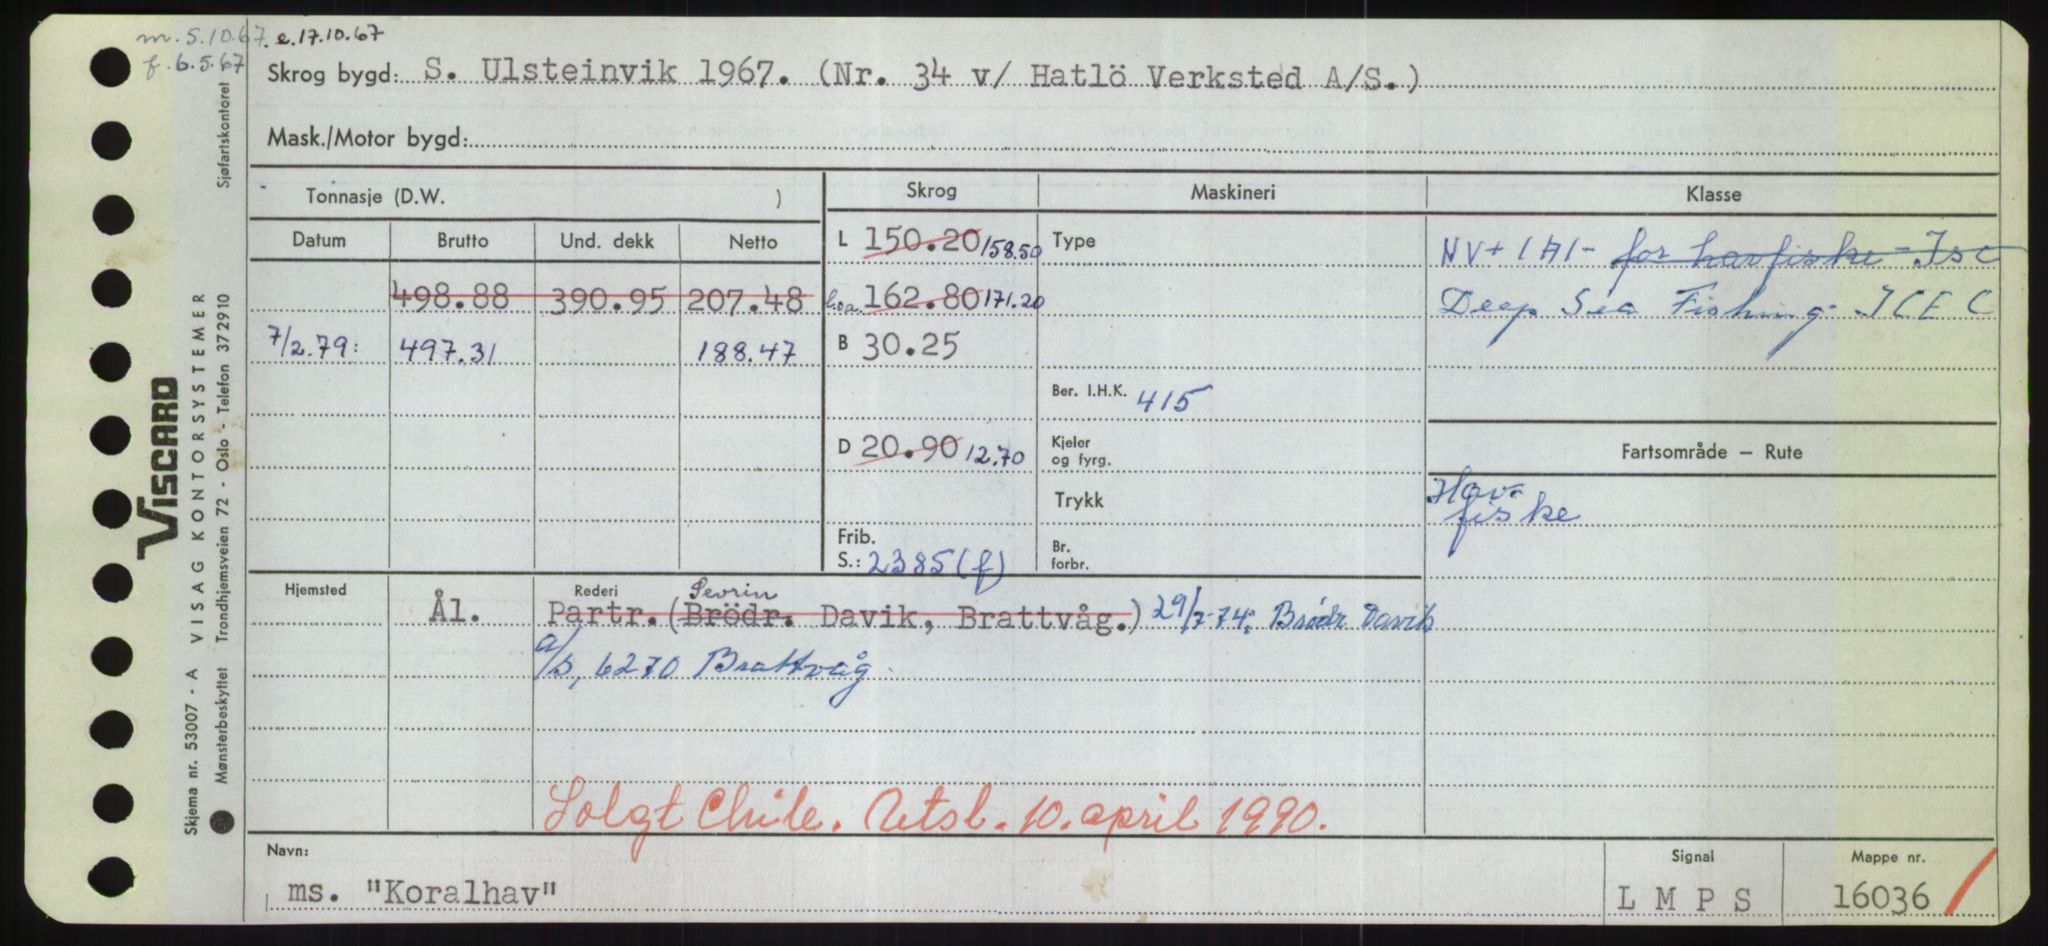 m. 5.10.67. e.17.10.67
f. 6.5.67
Skrog bygd: S. Ulsteinvik 1967. (Nr. 34 v/ Hatlö Verksted A/S.)
Mask./Motor bygd:
Tonnasje (D.W. )
Skrog
Maskineri
Klasse
Datum Brutto Und. dekk Netto
498.88 390.95 207.48
7/2.79: 497.31 188.47
L 150.20 158.50
l.o.a. 162.80 171.20
B 30.25
D 20.90 12.70
Frib.
S.: 2385 (f)
Type
Ber. I.H.K. 415
Kjeler
og fyrg.
Trykk
Br.
forbr.
NV + 1A1 - for havfiske - Is C
Deep Sea Fishing ICE C
Fartsområde — Rute
Hav-
fiske
Hjemsted
Ål.
Rederi
Sevrin
Partr. (Brödr. Davik, Brattvåg.) 29/7-74: Brödr Davik
A/S, 6270 Brattvåg.
Solgt Chile. Utsl. 10. april 1990.
Navn:
ms. "Koralhav"
Signal
L M P S
Mappe nr.
16036
VISCARD
Skjema nr. 53007 - A VISAG KONTORSYSTEMER
Mønsterbeskyttet Trondhjemsveien 72 - Oslo - Telefon 372910
Sjøfartskontoret